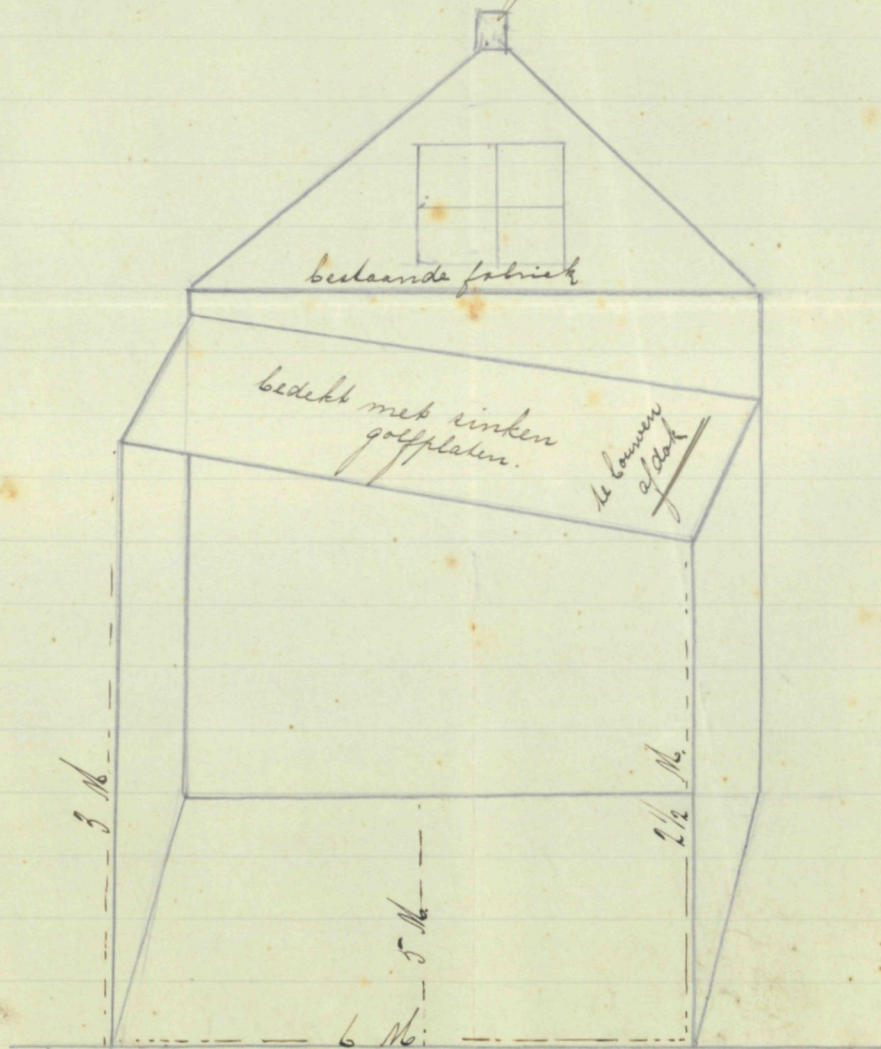 bestaande fabriek
bedekt met zinken
golfplaten.
te bouwen
afdak
3 M.
2 1/2 M.
5 M.
6 M.